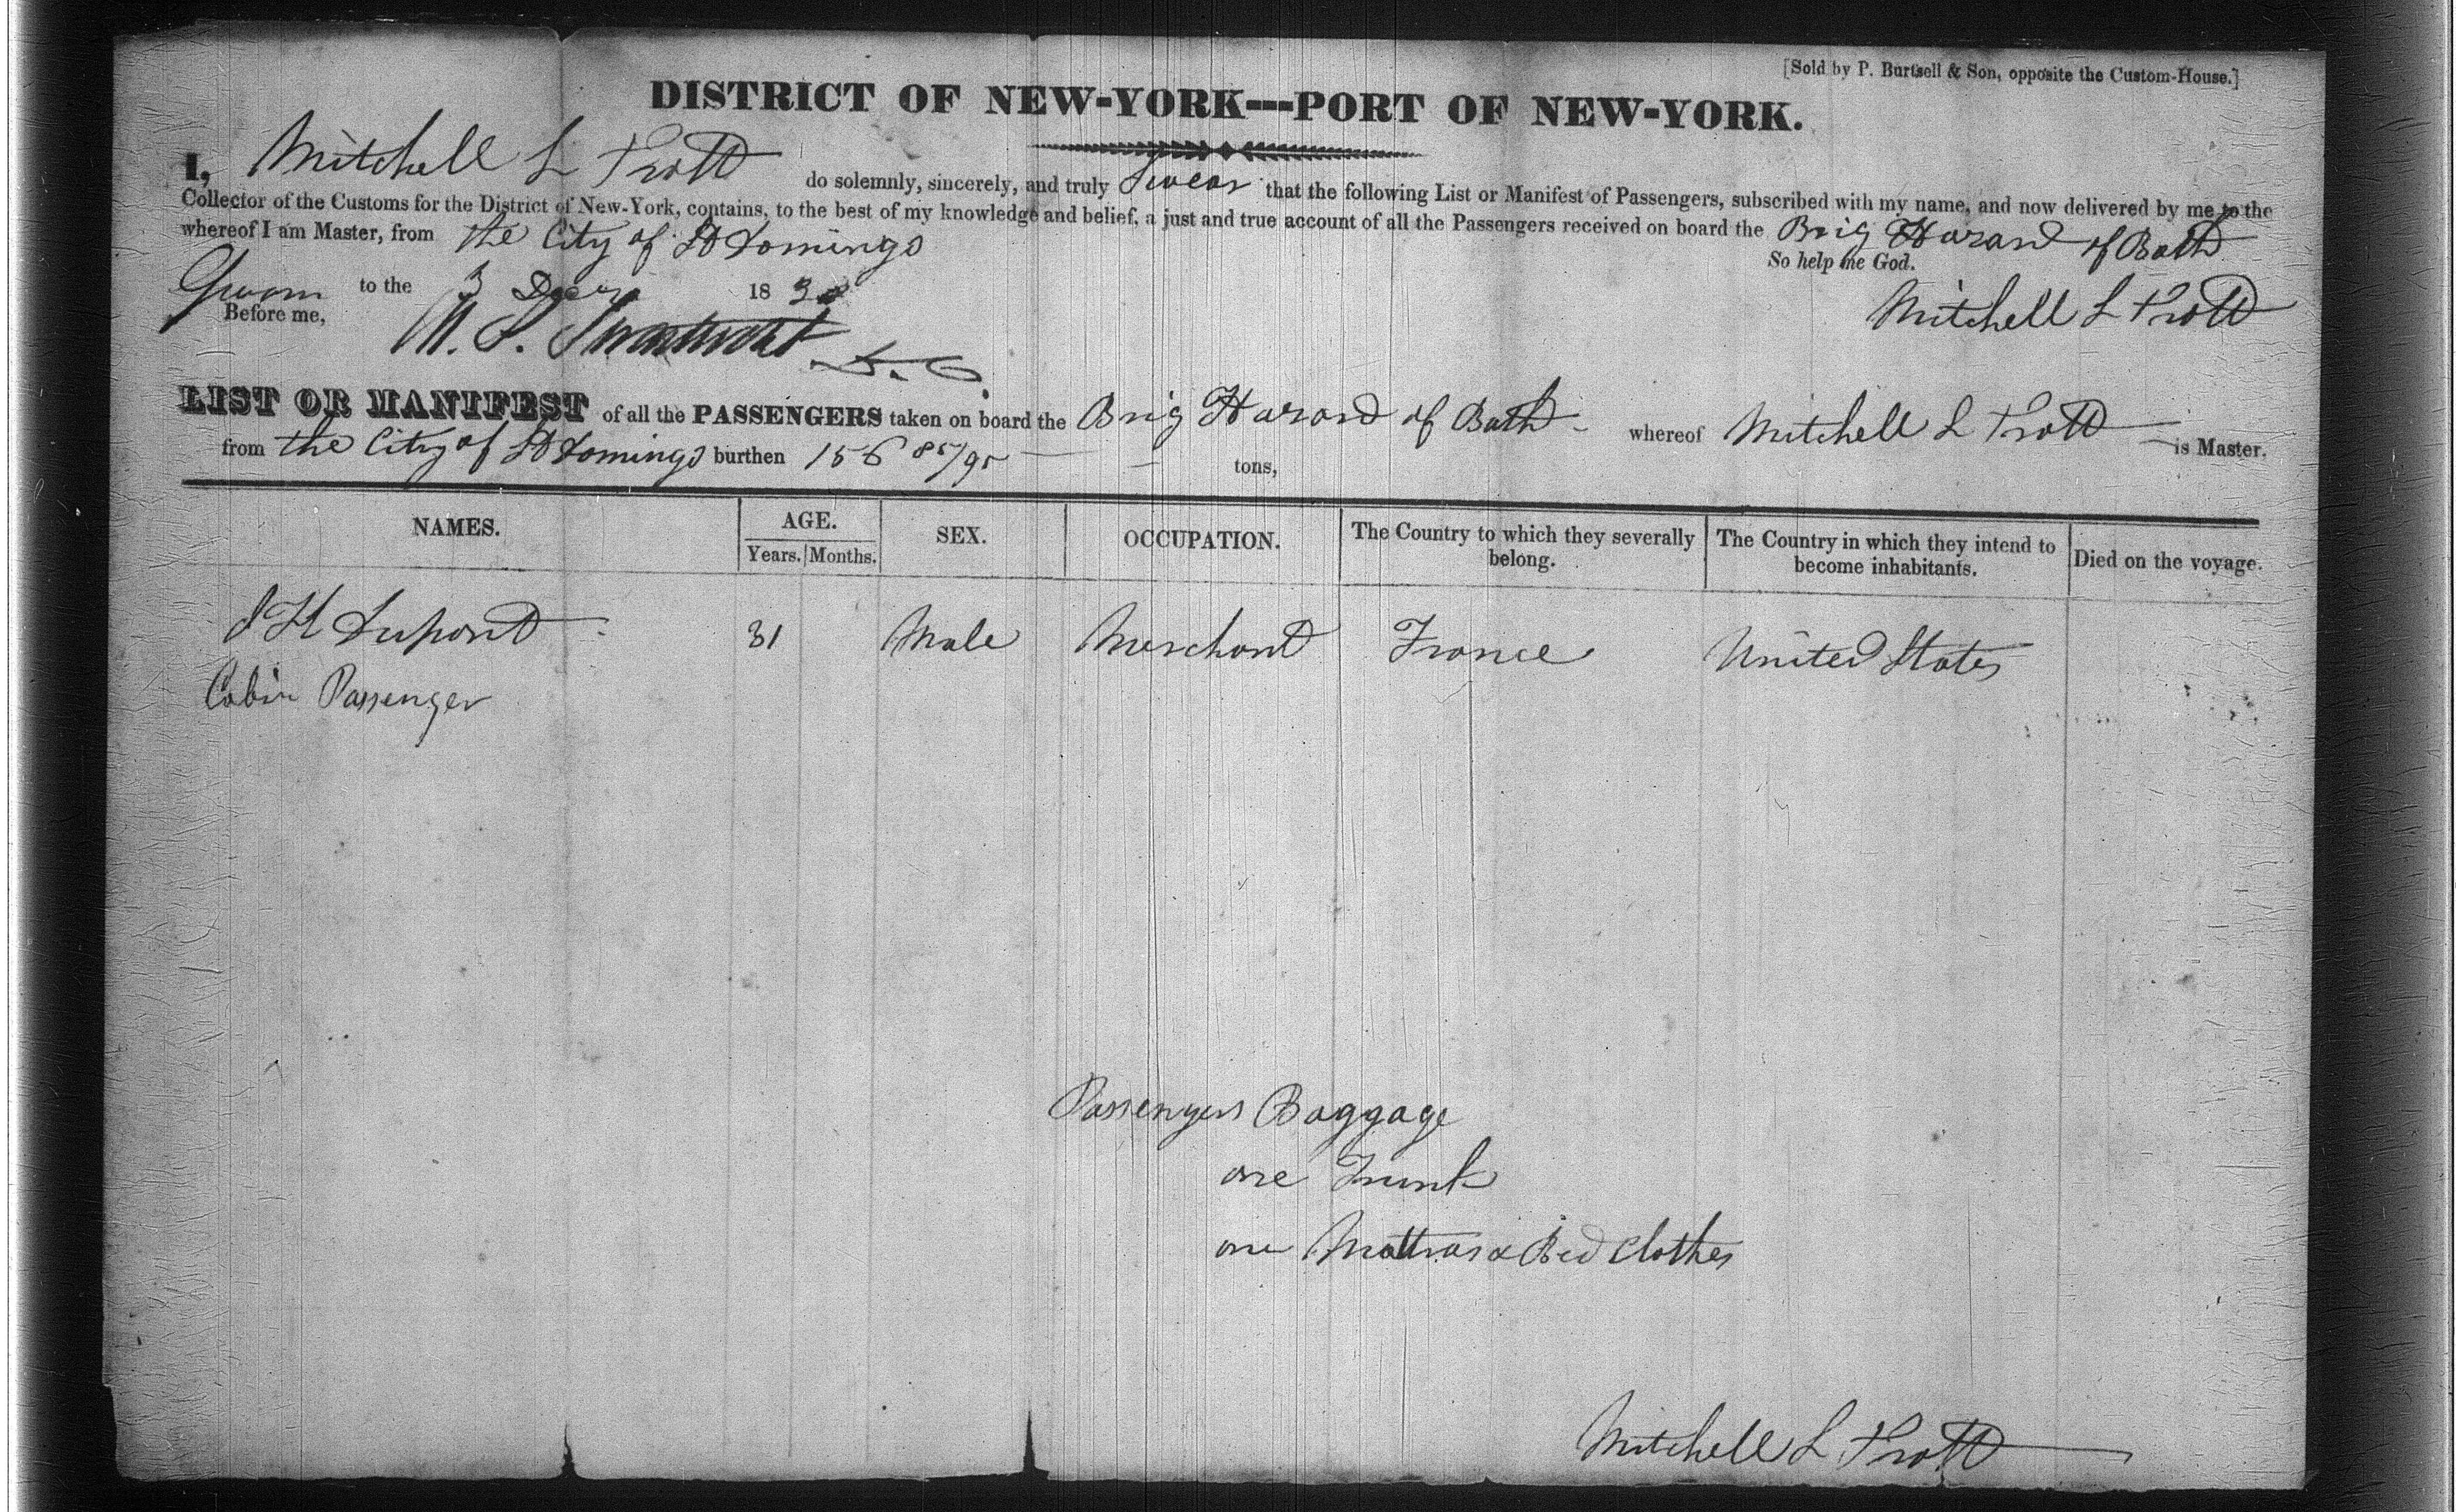 [Sold by P. Burtsell & Son, opposite the Custom-House.]
DISTRICT OF NEW-YORK---PORT OF NEW-YORK.
I, Mitchell L Trott do solemnly, sincerely, and truly Swear that the following List or Manifest of Passengers, subscribed with my name, and now delivered by me to the
Collector of the Customs for the District of New-York, contains, to the best of my knowledge and belief, a just and true account of all the Passengers received on board the Brig Harard of Bath
whereof I am Master, from the City of St Domingo
So help me God.
Sworn to the 3 Decr 183
Mitchell L Trott
Before me,
LIST OR MANIFEST of all the PASSENGERS taken on board the Brig Harard of Bath whereof Mitchell L Trott is Master.
from the City of St Domingo burthen 156 85/95 tons,
NAMES. AGE. SEX. OCCUPATION. The Country to which they severally belong. The Country in which they intend to become inhabitants. Died on the voyage.
Years. Months.
J H Dupont 31 Male Merchant France United States
Cabin Passenger
Passengers Baggage
one Trunk
one Mattras & Bed Clothes
Mitchell L Trott